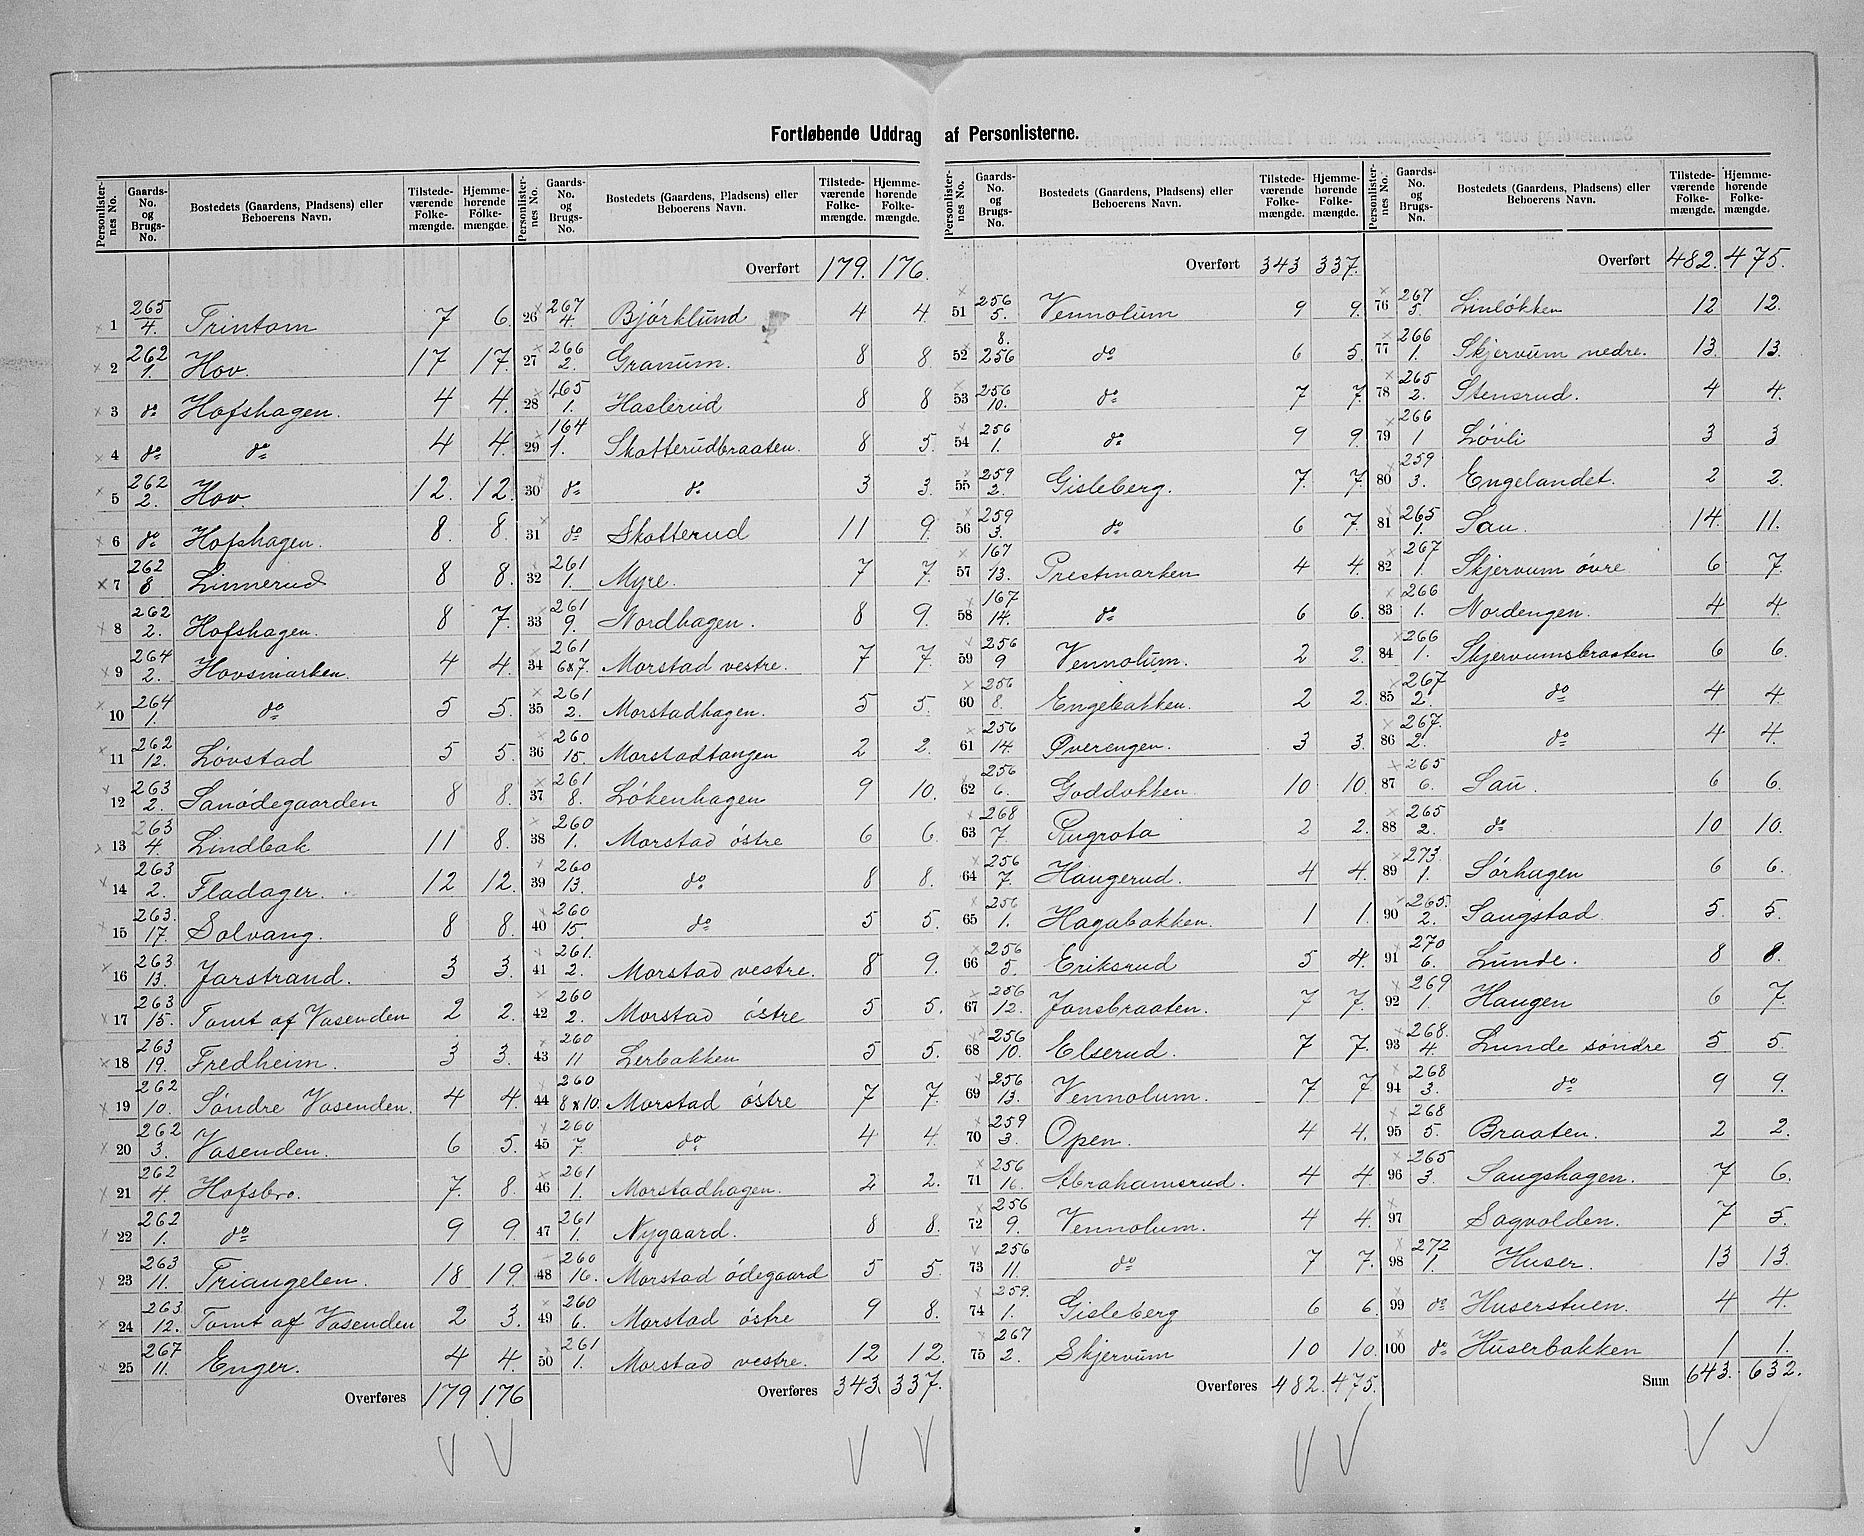 Fortløbende Uddrag af Personlisterne.
Personlister-nes No. | Gaards-No. og Brugs-No. | Bostedets (Gaardens, Pladsens) eller Beboerens Navn. | Tilstede-værende Folke-mængde. | Hjemme-hørende Folke-mængde.
1 265/4. Trintom 7 6.
2 262/1. Hov. 17 17.
3 do Hofshagen. 4 4.
4 do do 4 4.
5 262/2. Hov. 12. 12.
6 do Hofshagen. 8. 8.
7 262/8 Linnerud 8 8.
8 262/2. Hofshagen. 8 7.
9 264/2. Hovsmarken. 4 4.
10 264/1. do 5 5.
11 262/12. Løvstad 5 5.
12 263/2. Sanødegaarden 8 8.
13 263/4 Lindbak 11 8.
14 263/2. Fladager. 12 12.
15 263./17. Solvang. 8 8.
16 263/13. Jarstrand. 3 3.
17 263/15. Tomt af Vasenden 2 2.
18 263/19. Fredheim. 3 3.
19 262/10. Søndre Vasenden. 4 4.
20 262/3. Vasenden. 6 5.
21 262/4. Hofsbro. 7. 8.
22 262/1. do 9 9.
23 263/11. Triangelen. 18 19
24 263/12. Tomt af Vasenden 2 3.
25 267/11. Enger. 4 4.
Overføres 179 176
Personlister-nes No. | Gaards-No. og Brugs-No. | Bostedets (Gaardens, Pladsens) eller Beboerens Navn. | Tilstede-værende Folke-mængde. | Hjemme-hørende Folke-mængde.
Overført 179. 176.
26 267/4. Bjørklund 4 4
27 266/2. Granum. 8 8.
28 165/1. Haslerud 8 8
29 164/1. Skotterudbraaten. 8 5.
30 do do 3 3.
31 do Skotterud 11 9.
32 261/1. Myre. 7 7.
33 261/9. Nordhagen. 8 9.
34 261/6&7. Morstad vestre. 7 7.
35 261/2. Morstadhagen. 5 5.
36 260/15. Morstadtangen 2 2.
37 261/8. Løkenhagen 9 10.
38 260/1. Morstad østre 6 6
39 260/13. do 8 8.
40 260/15. do 5 5.
41 261./2. Morstad vestre. 8 9.
42 260/2. Morstad østre 5 5.
43 260/11 Lerbakken 5 5.
44 260/8&10. Morstad østre 7 7.
45 260/7. do 4 4.
46 261/1. Morstadhagen. 2 2.
47 261/1. Nygaard. 8 8.
48 260/16. Morstad ødegaard 5 5.
49 260/6. Morstad østre 9 8.
50 261/1. Morstad vestre. 12 12.
Overføres 343. 337.
Personlister-nes No. | Gaards-No. og Brugs-No. | Bostedets (Gaardens, Pladsens) eller Beboerens Navn. | Tilstede-værende Folke-mængde. | Hjemme-hørende Folke-mængde.
Overført 343 337.
51 256/5. Vennolum 9 9.
52 8./256 do 6 5.
53 256/10. do 7 7.
54 256/1. do 9 9.
55 259/2. Gisleberg. 7. 7.
56 259/3. do 6 7.
57 167/13. Prestmarken 4 4.
58 167/14. do 6 6.
59 256/9 Vennolum. 2 2.
60 256/8. Engebakken. 2 2.
61 256/14. Øverengen. 3 3.
62 256/6. Goddokken. 10 10.
63 268/7 Rugrota 2 2.
64 256/7. Haugerud. 4 4.
65 256/1. Hagabakken. 1 1.
66 256/5 Eriksrud 5 4.
67 256/12. Jonsbraaten. 7 7.
68 256/10. Elserud. 7 7.
69 256/13. Vennolum. 7 7.
70 259/3. Open. 4 4.
71 256/16. Abrahamsrud. 4 4.
72 256/9. Vennolum. 4 4.
73 256/11. do 7 7.
74 259./1. Gisleberg 6 6
75 267/2. Skjervum 10 10.
Overføres 482. 475.
Personlister-nes No. | Gaards-No. og Brugs-No. | Bostedets (Gaardens, Pladsens) eller Beboerens Navn. | Tilstede-værende Folke-mængde. | Hjemme-hørende Folke-mængde.
Overført 482. 475.
76 267/5 Linløkken 12 12.
77 266/1. Skjervum nedre. 13. 13.
78 265/2. Stensrud. 4 4.
79 266/1 Løvli 3 3
80 259/3. Engelandet. 2 2.
81 265/1. Sau. 14. 11.
82 267/1. Skjervum øvre 6 7.
83 266/1. Nordengen. 4 4
84 266/1. Skjervumsbraaten 6 6.
85 267/2. do 4 4.
86 267./2. do 4 4.
87 265/6. Sau. 6 6.
88 265/2. do 10 10.
89 273./1. Sørhagen 6 6.
90 265./2. Saugstad. 5 5.
91 270/6. Lunde. 8 8.
92 269/1 Haugen 6 7.
93 268./4. Lunde søndre 5 5.
94 268/3. do 9 9.
95 268/5. Braaten. 2 2.
96 265/3. Saugshagen. 7 6.
97 Sagvolden. 7 5.
98 272/1. Huser. 13 13.
99 do Huserstuen. 4 4.
100 do Huserbakken 1 1.
Sum 643. 632.